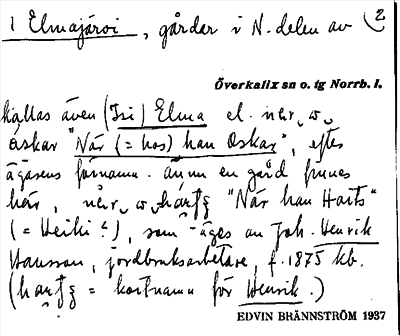 1 Elmajärvi, gårdar i N. delen av 2
Överkalix sn o. tg Norrb. l.
Kallas även (Isi) Elma el.
Oskar "När (= hos) han Oskar", efter
ägarens förnamn. Ännu en gård finnes
här, "När han Haits"
(= Heiki?), som äges av Joh. Henrik
Hansson, jordbruksarbetare, f. 1875 kb.
( = kortnamn för Henrik.)
EDVIN BRÄNNSTRÖM 1937